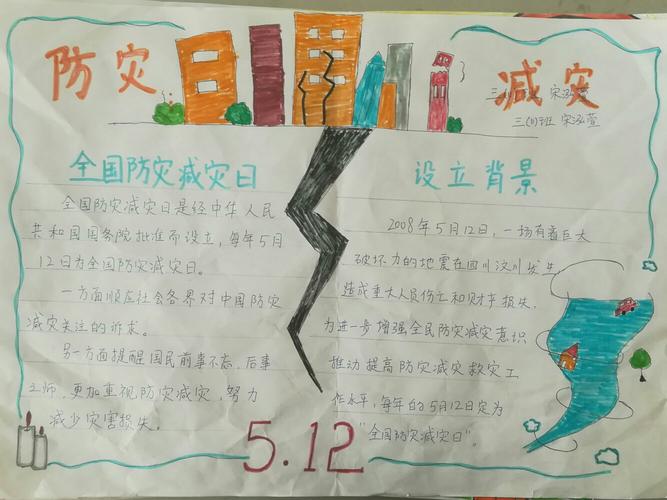 防灾
减灾
三(1)班 宋泓萱
三(1)班 宋泓萱
全国防灾减灾日
全国防灾减灾日是经中华人民
共和国国务院批准而设立，每年5月
12日为全国防灾减灾日。
一方面顺应社会各界对中国防灾
减灾关注的诉求。
另一方面提醒国民前事不忘，后事
之师，更加重视防灾减灾，努力
减少灾害损失。
设立背景
2008年5月12日，一场有着巨大
破坏力的地震在四川汶川发生，
造成重大人员伤亡和财产损失，
为进一步增强全民防灾减灾意识
推动提高防灾减灾救灾工
作水平，每年的5月12日定为
“全国防灾减灾日”。
5.12